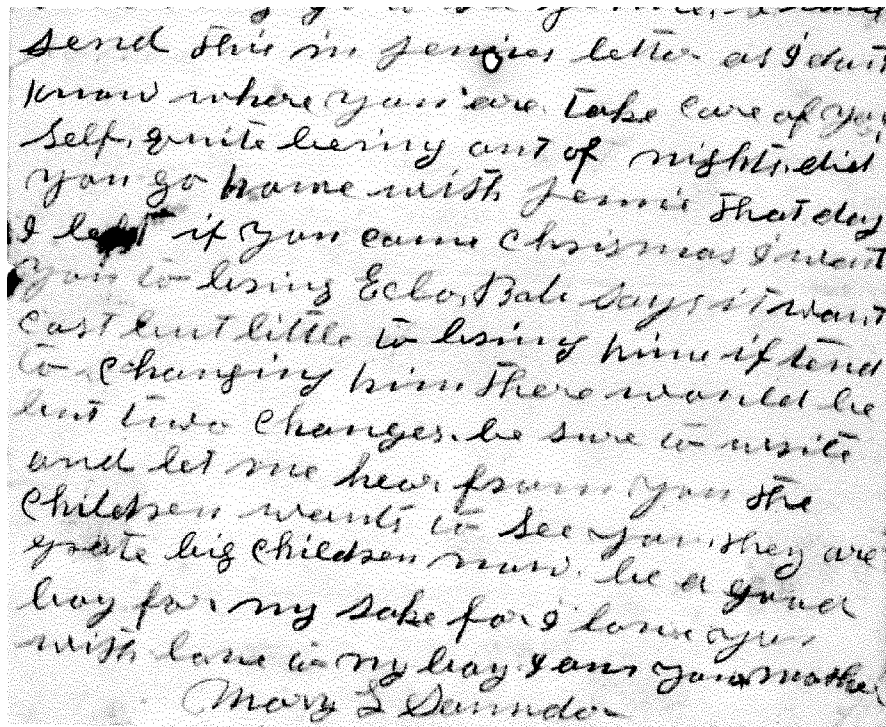 send this in jennies letter as I dont
know where you are. take care of your
self. quite being out of nights. did
you go home with jennie that day
I left if you come chrismas I want
you to bring Echo, Bob says it want
cost but little to bring him if tend
to changing him there would be
but two changes. be sure to write
and let me hear from you the
children wants to see you. they are
grate big children now. be a good
boy for my sake for I love you
with love to my boy I am your mother
Mary L Saunders